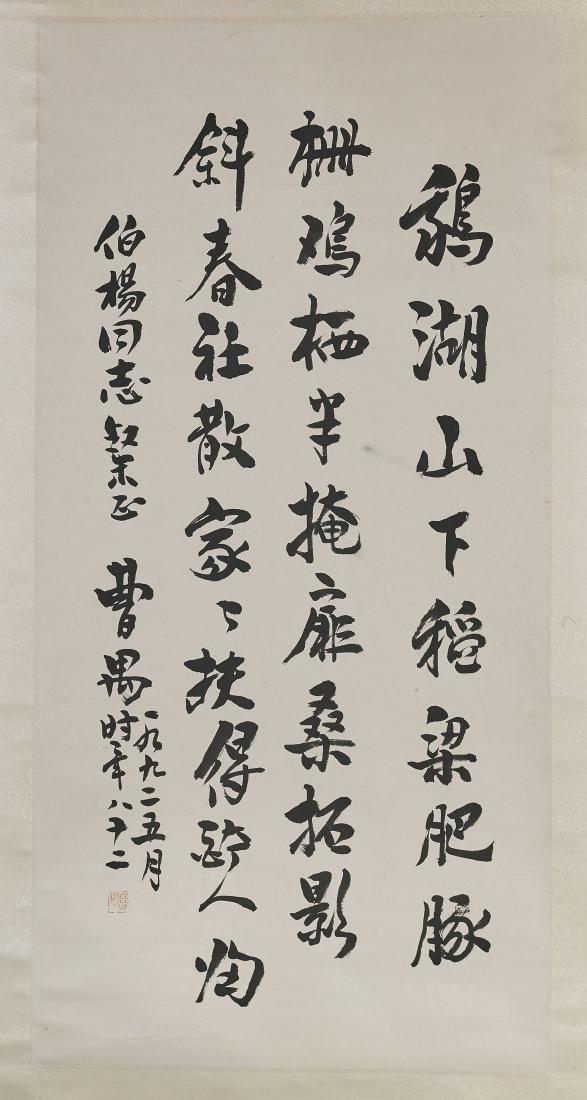 鵝湖山下稻梁肥豚
柵鸡栖半掩扉桑拓影
斜春社散家〻扶得醉人归
伯楊同志粲正 曹禺
一九九二五月
时年八十二